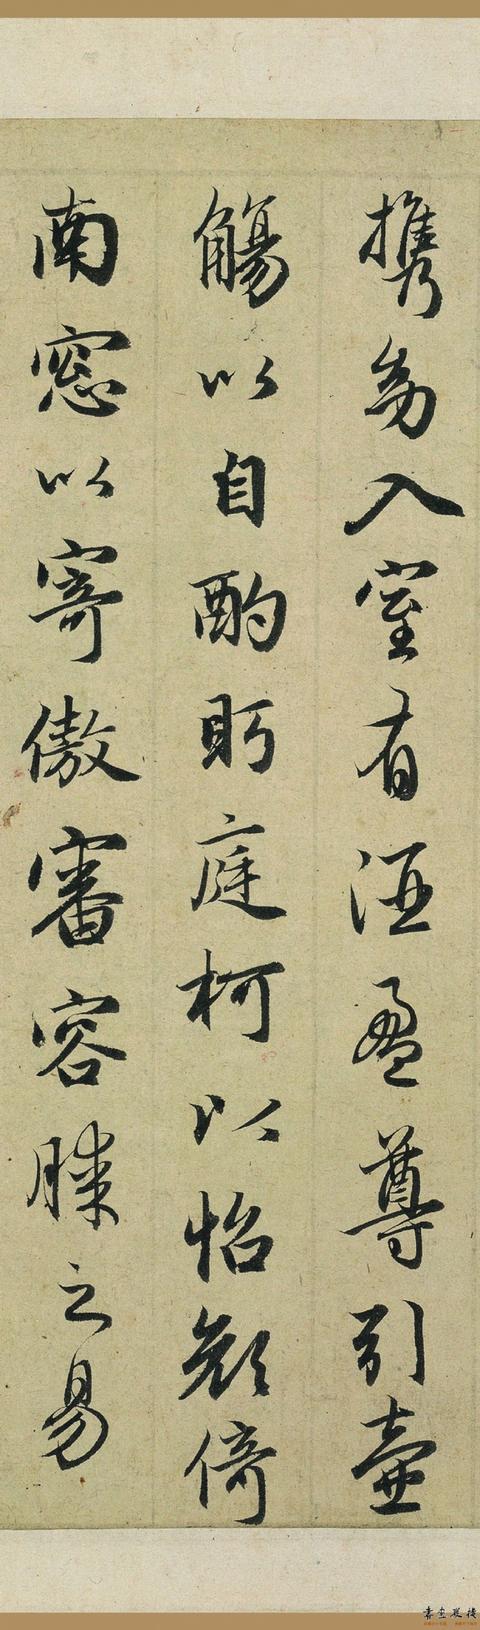 携幼入室有酒盈尊引壺
觴以自酌眄庭柯以怡顔倚
南窓以寄傲審容膝之易